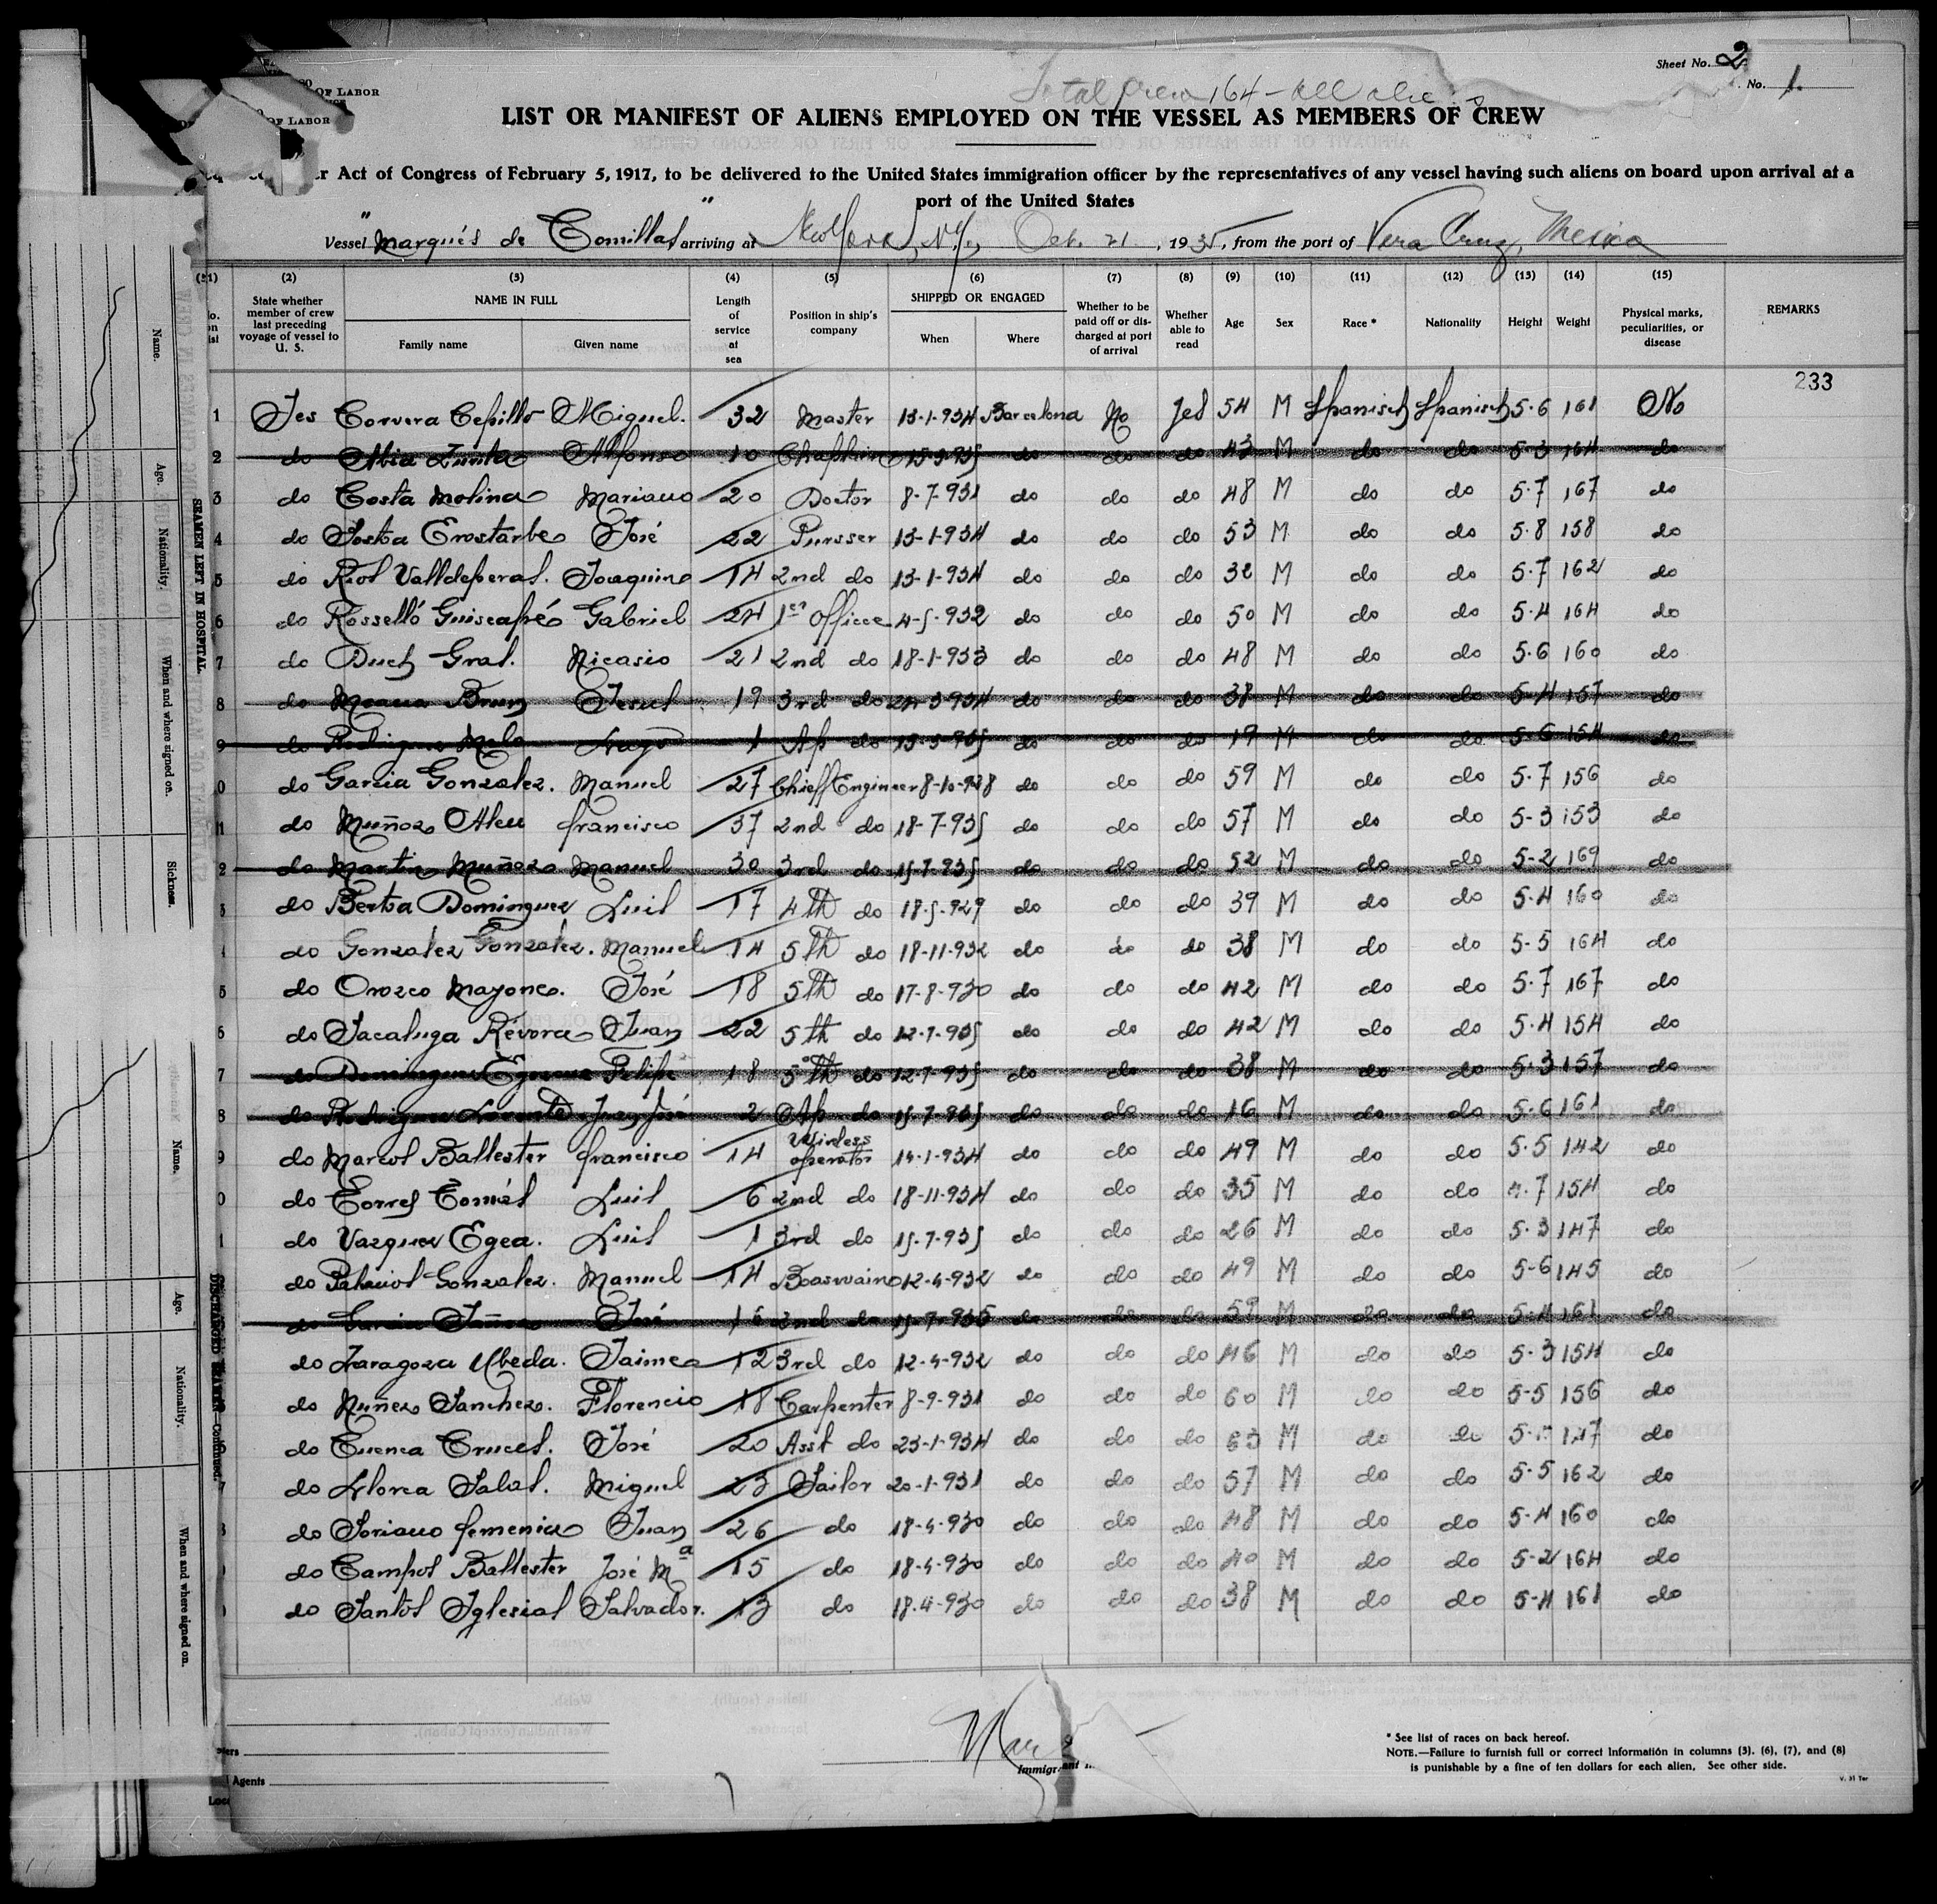 Sheet No. 2
No. 1.
OF LABOR
OF LABOR
Total crew 164 - all
LIST OR MANIFEST OF ALIENS EMPLOYED ON THE VESSEL AS MEMBERS OF CREW
Act of Congress of February 5, 1917, to be delivered to the United States immigration officer by the representatives of any vessel having such aliens on board upon arrival at a
port of the United States
Vessel "Marqués de Comillas" arriving at New York, N.Y., Oct. 21, 1935, from the port of Vera Cruz, Mexico
(2) (3) (4) (5) (6) (7) (8) (9) (10) (11) (12) (13) (14) (15)
State whether member of crew last preceding voyage of vessel to U. S. NAME IN FULL Family name Given name Length of service at sea Position in ship's company SHIPPED OR ENGAGED When Where Whether to be paid off or discharged at port of arrival Whether able to read Age Sex Race * Nationality Height Weight Physical marks, peculiarities, or disease REMARKS
233
1 Yes Corvera Cepillo Miguel. 32 Master 13-1-934 Barcelona No Yes 54 M Spanisch Spanisch 5-6 161 No
2 do Alfonso 10 do do do 43 M do do 5-3 164 do
3 do Costa Molina Mariano 20 Doctor 8-7-931 do do do 48 M do do 5-7 167 do
4 do Sosta Erostarbe José 22 Pursser 13-1-934 do do do 53 M do do 5-8 158 do
5 do Riol Valldeperas. Joaquin 14 2nd do 13-1-934 do do do 32 M do do 5-7 162 do
6 do Rosselló Guiscafré Gabriel 24 1er Officer 4-5-932 do do do 50 M do do 5-4 164 do
7 do Duch Gral. Nicasio 21 2nd do 18-1-933 do do do 48 M do do 5-6 160 do
8 do Jesus 19 3rd do 24-3-934 do do do 38 M do do 5-4 157 do
9 do Rodriguez Melo 1 Ap do do do do 19 M do do 5-6 154 do
0 do Garcia Gonzalez. Manuel 27 Chieff Engineer 8-10-928 do do do 59 M do do 5-7 156 do
11 do Muñoz Aleu francisco 37 2nd do 18-7-935 do do do 57 M do do 5-3 153 do
2 do Martin Muñoz Manuel 30 3rd do 15-7-935 do do do 52 M do do 5-2 169 do
3 do Bertsa Dominguez Luis 17 4th do 18-5-929 do do do 39 M do do 5-4 160 do
4 do Gonzalez Gonzalez. Manuel 14 5th do 18-11-932 do do do 38 M do do 5-5 164 do
5 do Orozco Mayone. José 18 5th do 17-8-930 do do do 42 M do do 5-7 167 do
6 do Sacaluga Révora Juan 22 5th do 12-7-935 do do do 42 M do do 5-4 154 do
7 do Dominguez Felipe 18 5th do 12-7-935 do do do 38 M do do 5-3 157 do
8 do Rodriguez Lorente Juan José 2 Ap do 15-7-935 do do do 16 M do do 5-6 161 do
9 do Marcos Ballester francisco 14 Wireless operator 14-1-934 do do do 49 M do do 5-5 142 do
0 do Torres Tomás Luis 6 2nd do 18-11-934 do do do 35 M do do 7 154 do
1 do Vazquez Egea. Luis 1 3rd do 15-7-935 do do do 26 M do do 5-3 147 do
do Palaciol Gonzalez. Manuel 14 Boaswain 12-4-932 do do do 49 M do do 5-6 145 do
do Garcia José 2nd do 15-7-935 do do do 59 M do do 5-4 do
do Zaragoza Ubeda. Jaime 12 3rd do 12-4-932 do do do 46 M do do 5-3 154 do
do Nuñez Sanchez. Florencio 18 Carpenter 8-9-931 do do do 60 M do do 5-5 156 do
do Cuenca Cruces. José 20 Asst do 23-1-934 do do do 63 M do do do
7 do Llorca Salas. Miguel 23 Sailor 20-1-931 do do do 57 M do do 5-5 162 do
do Soriano femenia Juan 26 do 18-4-930 do do do 48 M do do 5-4 160 do
do Campos Ballester José Ma 15 do 18-4-930 do do do 40 M do do 5-2 164 do
do Santos Iglesias Salvador. 13 do 18-4-930 do do do 38 M do do 5-4 161 do
Immigr
Agents
* See list of races on back hereof.
NOTE.—Failure to furnish full or correct information in columns (3), (6), (7), and (8)
is punishable by a fine of ten dollars for each alien. See other side.
V. 31 Ter
SEAMEN LEFT IN HOSPITAL
Name.
Age.
Nationality.
When and where signed on.
Sickness.
Continued.
Name.
Age.
Nationality.
When and where signed on.